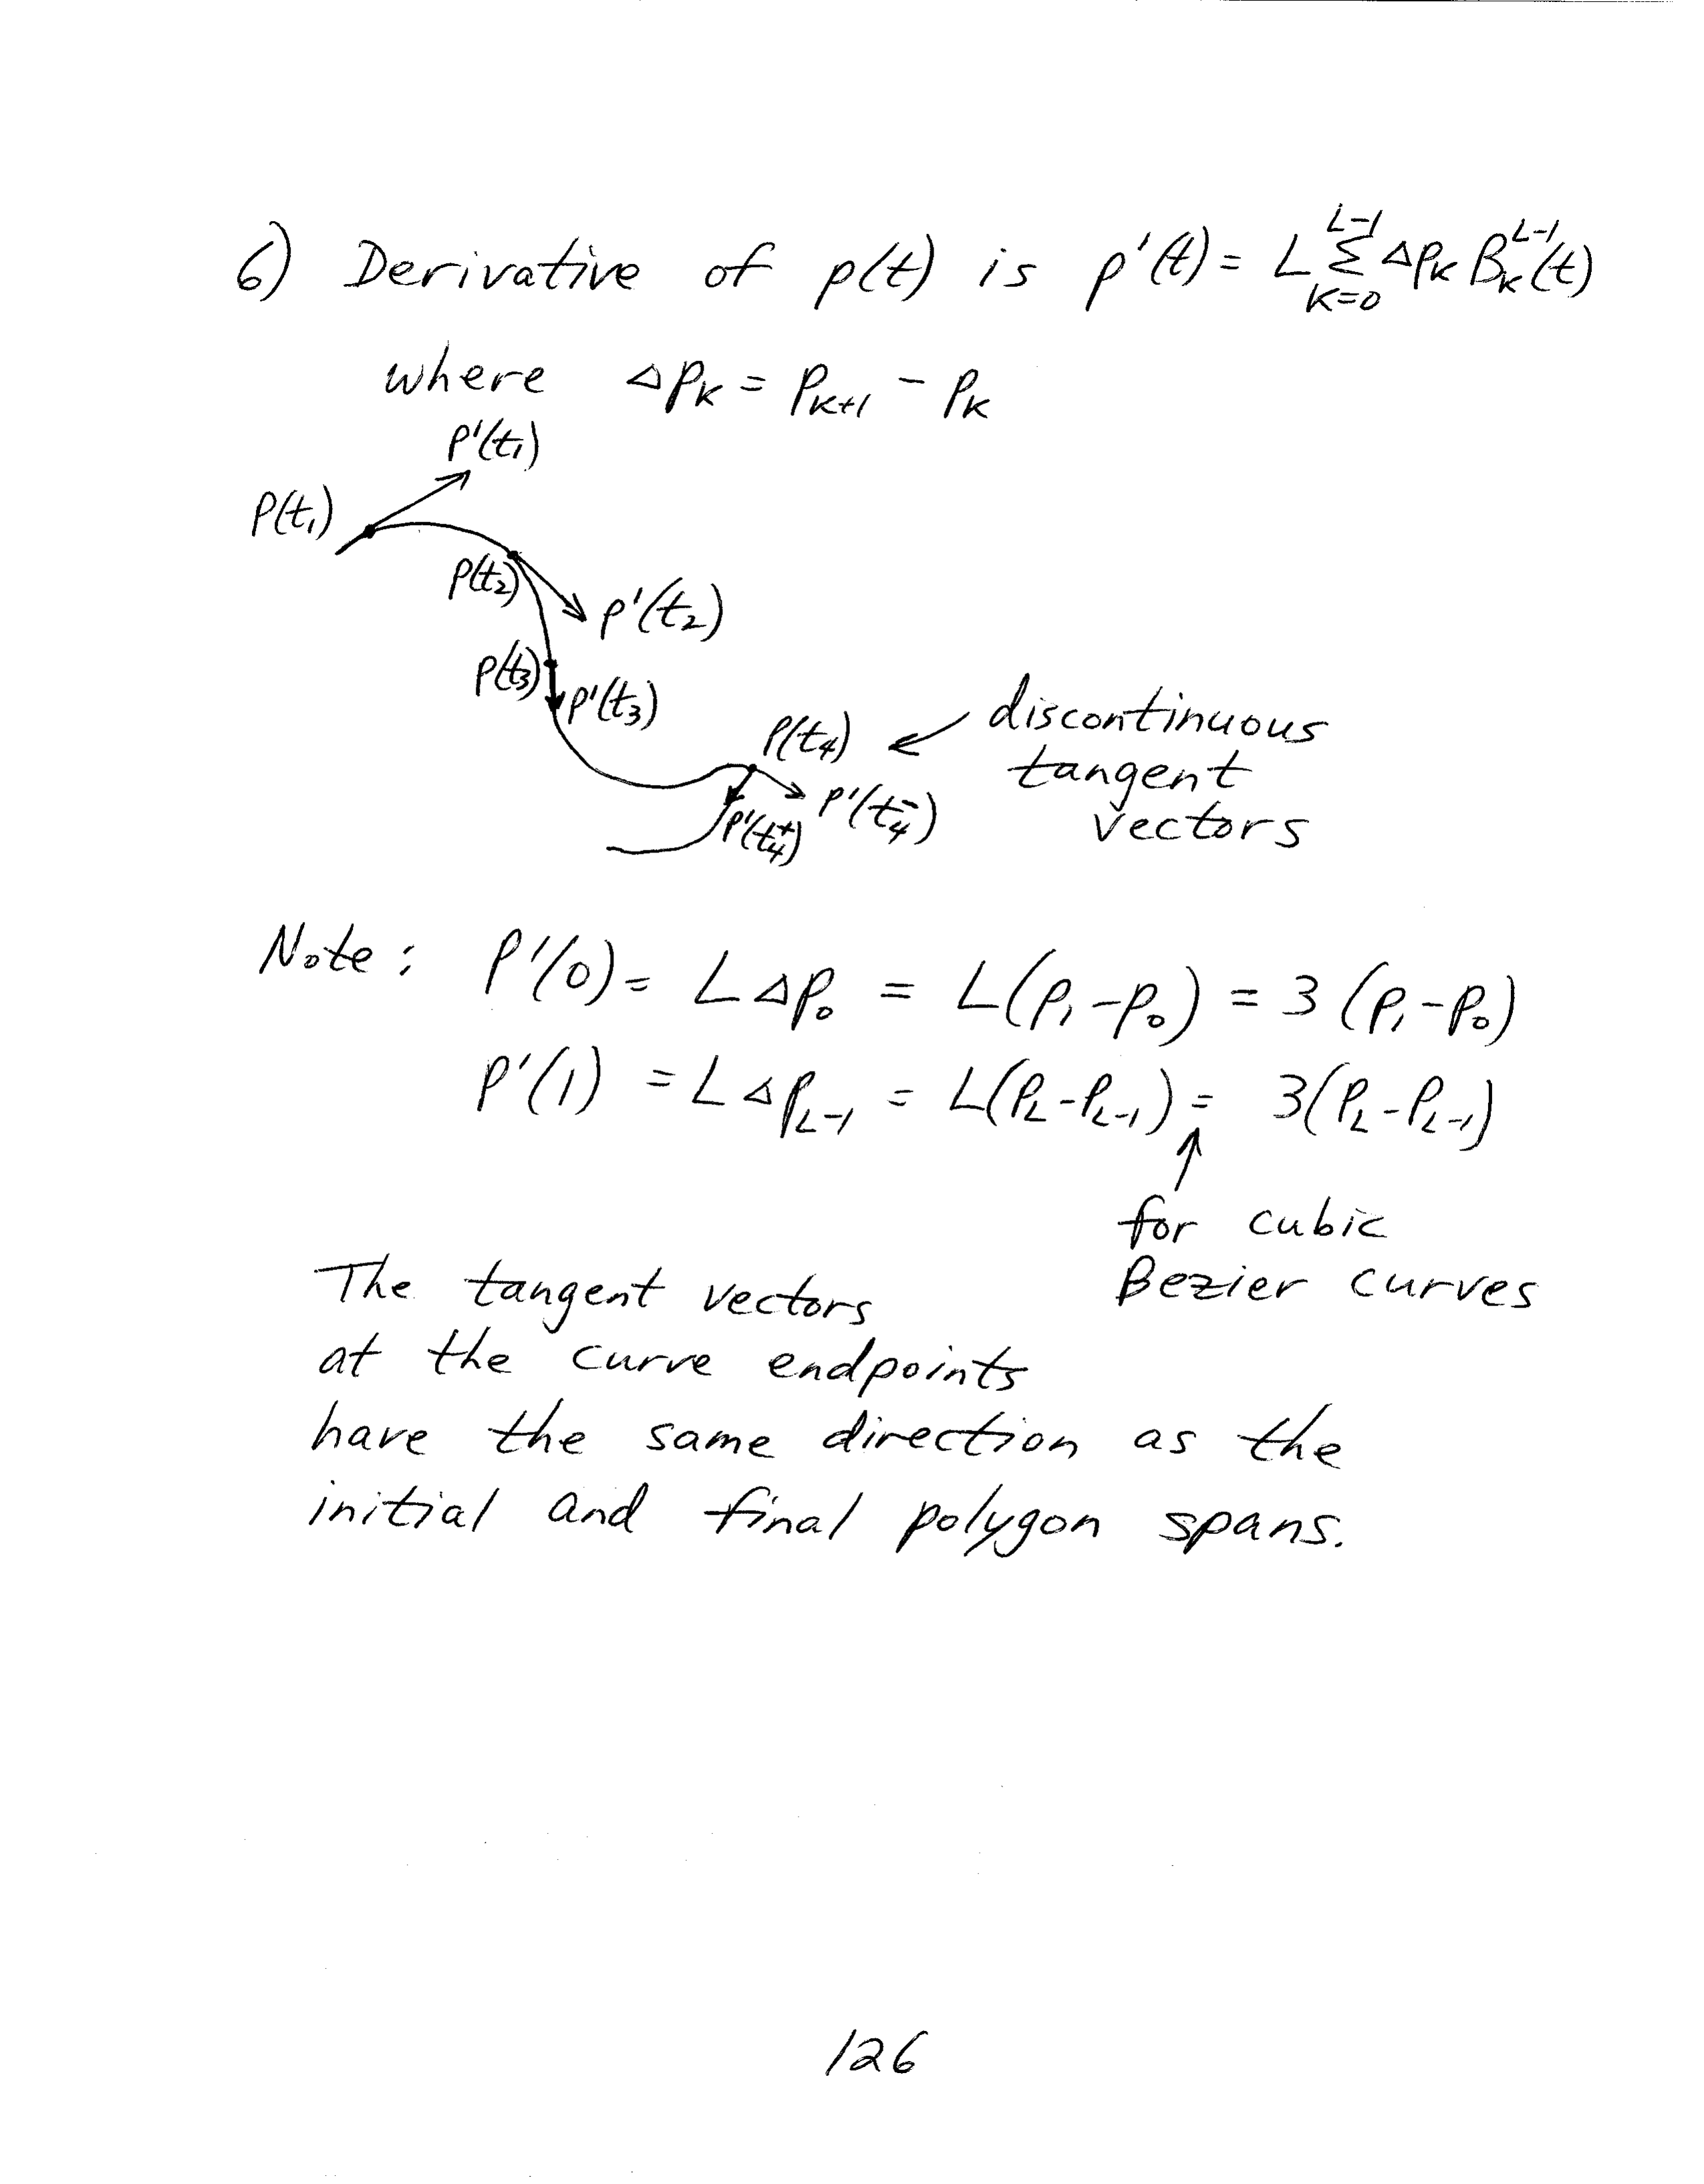 6) Derivative of p(t) is p'(t) = L Σ_{K=0}^{L-1} Δp_K B_K^{L-1}(t)
where Δp_K = p_{K+1} - p_K
p'(t₁)
p(t₁)
p(t₂)
p'(t₂)
p(t₃)
p'(t₃)
p(t₄) ← discontinuous
tangent
vectors
p'(t₄⁻)
p'(t₄⁺)
Note: p'(0) = LΔp₀ = L(p₁-p₀) = 3(p₁-p₀)
p'(1) = LΔp_{L-1} = L(p_L-p_{L-1}) = 3(p_L-p_{L-1})
↑
for cubic
Bezier curves
The tangent vectors
at the curve endpoints
have the same direction as the
initial and final polygon spans.
126